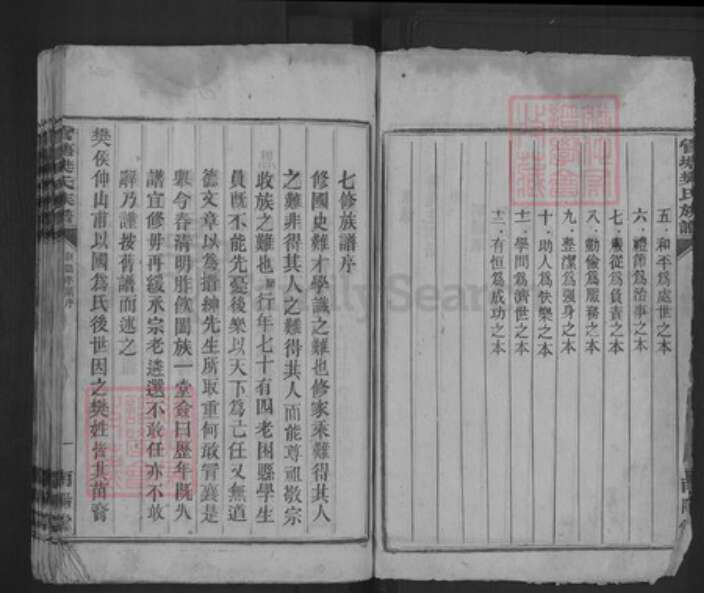 五·和平爲處世之本
六·禮節爲治事之本
七·服從爲負責之本
八·勤儉爲服務之本
九·整潔爲强身之本
十·助人爲快樂之本
十一·學問爲濟世之本
十二·有恒爲成功之本
樊氏族譜
七修族譜序
修國史難才學識之難也修家乘難得其人
之難非得其人之難得其人而能尊祖敬宗
收族之難也 行年七十有四老困縣學生
員旣不能先憂後樂以天下爲己任又無道
德文章以爲搢紳先生所取重何敢 襄是
舉今春清明胙飲闔族一堂僉曰歷年旣久
譜宜修毋再緩承宗老遴選不敢任亦不敢
辭乃謹按舊譜而述之
樊侯仲山甫以國爲氏後世因之樊姓皆其苗裔
樊氏族譜
一
南陽堂
FamilySearch